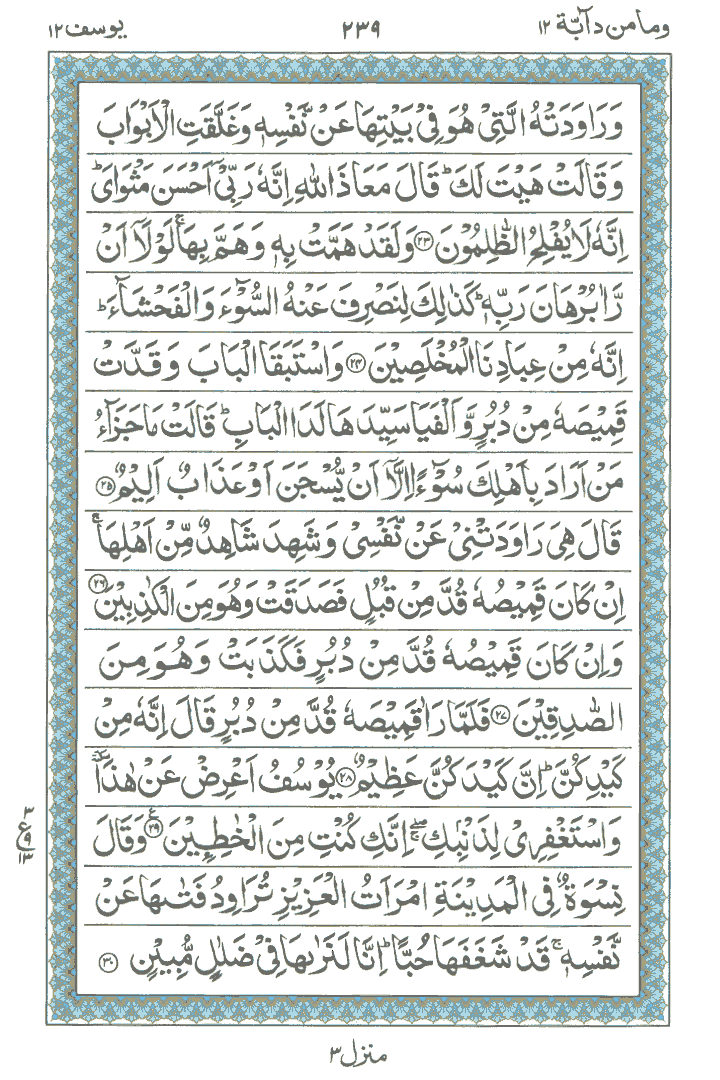 وما من دآبّة ١٢ ٢٣٩ يوسف ١٢
وَرَاوَدَتْهُ الَّتِیْ هُوَ فِیْ بَیْتِهَا عَنْ نَّفْسِهٖ وَغَلَّقَتِ الْاَبْوَابَ
وَقَالَتْ هَیْتَ لَكَ ؕ قَالَ مَعَاذَ اللّٰهِ اِنَّهٗ رَبِّیْۤ اَحْسَنَ مَثْوَایَ ؕ
اِنَّهٗ لَا یُفْلِحُ الظّٰلِمُوْنَ ﴿۲۳﴾ وَلَقَدْ هَمَّتْ بِهٖ وَهَمَّ بِهَا ۚ لَوْلَاۤ اَنْ
رَّاٰ بُرْهَانَ رَبِّهٖ ؕ كَذٰلِكَ لِنَصْرِفَ عَنْهُ السُّوْٓءَ وَالْفَحْشَآءَ ؕ
اِنَّهٗ مِنْ عِبَادِنَا الْمُخْلَصِیْنَ ﴿۲۴﴾ وَاسْتَبَقَا الْبَابَ وَقَدَّتْ
قَمِیْصَهٗ مِنْ دُبُرٍ وَّاَلْفَیَا سَیِّدَهَا لَدَا الْبَابِ ؕ قَالَتْ مَا جَزَآءُ
مَنْ اَرَادَ بِاَهْلِكَ سُوْٓءًا اِلَّاۤ اَنْ یُّسْجَنَ اَوْ عَذَابٌ اَلِیْمٌ ﴿۲۵﴾
قَالَ هِیَ رَاوَدَتْنِیْ عَنْ نَّفْسِیْ وَشَهِدَ شَاهِدٌ مِّنْ اَهْلِهَا ۚ
اِنْ كَانَ قَمِیْصُهٗ قُدَّ مِنْ قُبُلٍ فَصَدَقَتْ وَهُوَ مِنَ الْكٰذِبِیْنَ ﴿۲۶﴾
وَاِنْ كَانَ قَمِیْصُهٗ قُدَّ مِنْ دُبُرٍ فَكَذَبَتْ وَهُوَ مِنَ
الصّٰدِقِیْنَ ﴿۲۷﴾ فَلَمَّا رَاٰ قَمِیْصَهٗ قُدَّ مِنْ دُبُرٍ قَالَ اِنَّهٗ مِنْ
كَیْدِكُنَّ ؕ اِنَّ كَیْدَكُنَّ عَظِیْمٌ ﴿۲۸﴾ یُوْسُفُ اَعْرِضْ عَنْ هٰذَا ٚ
وَاسْتَغْفِرِیْ لِذَنْۢبِكِ ۖۚ اِنَّكِ كُنْتِ مِنَ الْخٰطِـِٕیْنَ ﴿۲۹﴾ ع وَقَالَ
نِسْوَةٌ فِی الْمَدِیْنَةِ امْرَاَتُ الْعَزِیْزِ تُرَاوِدُ فَتٰىهَا عَنْ
نَّفْسِهٖ ۚ قَدْ شَغَفَهَا حُبًّا ؕ اِنَّا لَنَرٰىهَا فِیْ ضَلٰلٍ مُّبِیْنٍ ﴿۳۰﴾
٣
ع
٩
١٣
منزل ٣